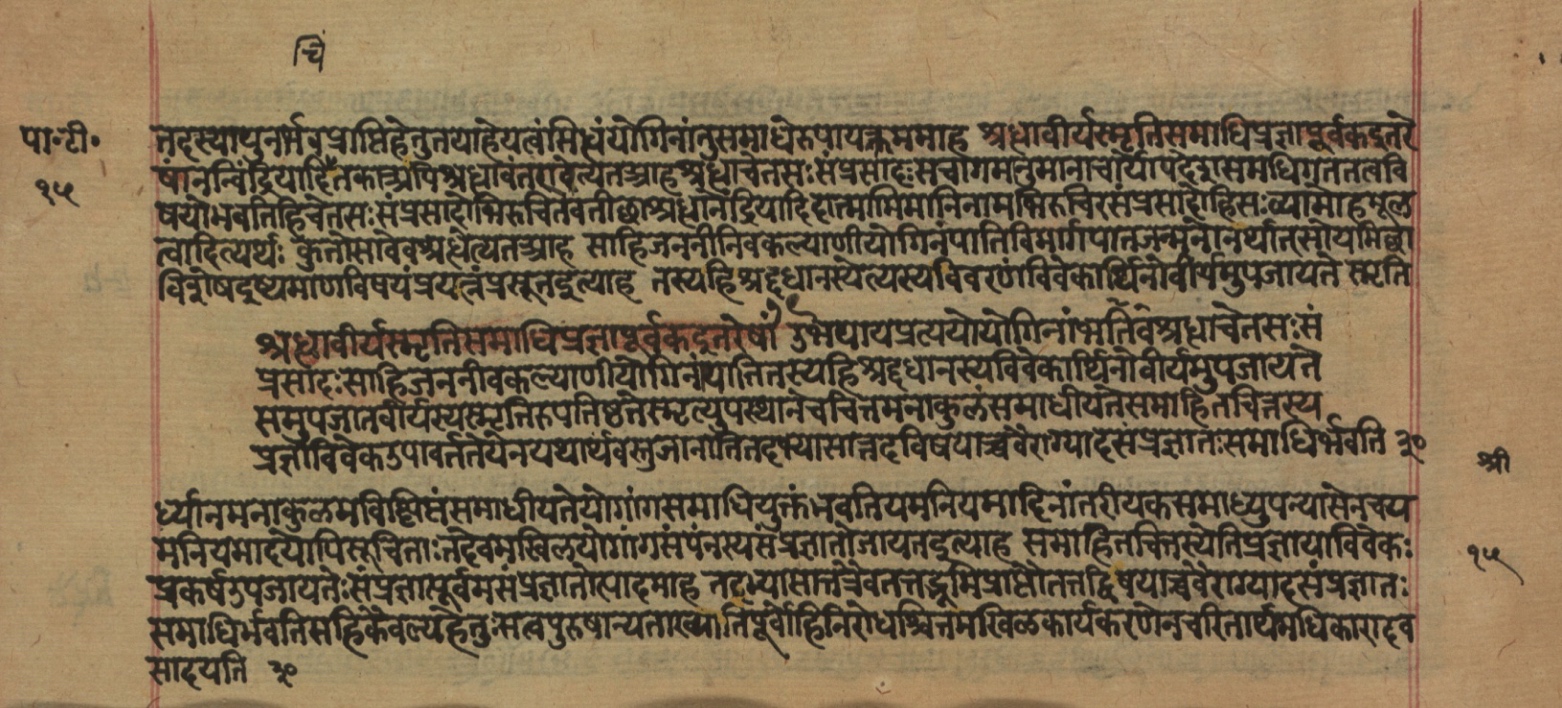 चि
पा॰टी॰
१५
तदस्यापुनर्भवप्राप्तिहेतुतयाहेयत्वंसिध्यंयोगिनांतुसमाधेरुपायक्रममाह श्रधावीर्यस्मृतिसमाधिप्रज्ञापूर्वकइतरे
षांनन्विंद्रियादिचिंतकाअपिश्रधावंतएवेत्यतआहश्रधाचेतसःसंप्रसादःसचागमानुमानाचार्योपदेशसमधिगततत्ववि
षयोभवतिहिचेतसःसंप्रसादोभिरुचितेवतीछाश्रधानेंद्रियादिहात्माभिमानिनामभिरुचिरसंप्रसादोहिसःव्यामोहमूल
त्वादित्यर्थः कुतोसावेवश्रधेत्यतआह साहिजननीनिवकल्याणीयोगिनंपातिविमार्गपातजन्मनोनर्थात्सोयमिछा
विशेषइष्यमाणविषयंप्रयत्नंप्रसूतइत्याह तस्यहिश्रद्दधानस्येत्यस्यविवरणंविवेकार्थिनोवीर्यमुपजायते स्मृति
श्रधावीर्यस्मृतिसमाधिप्रज्ञापूर्वकइतरेषां उपायप्रत्ययोयोगिनांभवतिश्रधाचेतसःसं
प्रसादःसाहिजननीवकल्याणीयोगिनंपातितस्यहिश्रद्दधानस्यविवेकार्थिनोवीर्यमुपजायते
समुपजातवीर्यस्यस्मृतिरुपतिष्ठतेस्मृत्युपस्थानेचचित्तमनाकुळंसमाधीयतेसमाहितचित्तस्य
प्रज्ञाविवेकउपावर्ततेयेनयथार्थवस्तुजानातितदभ्यासात्तदविषयाच्चवैराग्यादसंप्रज्ञातःसमाधिर्भवति २०
श्री
र्ध्यानमनाकुळमविक्षिप्तंसमाधीयतेयोगांगसमाधियुक्तंभवतियमनियमादिनांतरीयकसमाध्युपन्यासेनचय
मनियमादयोपिसूचिताःतदेवमखिलयोगांगसंपंनस्यसंप्रज्ञातोजायतइत्याह समाहितचित्तस्येतिप्रज्ञायाविवेकः
१५
प्रकर्षउपजायतेःसंप्रज्ञापूर्वमसंप्रज्ञातोत्पादमाह तदभ्यासात्तत्रैवतत्तद्भूमिप्राप्तौतत्तद्विषयाच्चवैराग्यादसंप्रज्ञातः
समाधिर्भवतिसहिकैवल्यहेतुःसत्वपुरुषान्यताख्यातिपूर्वोहिनिरोधश्चित्तमखिळकार्यकरणेनचरितार्थमधिकारादव
सादयति २०